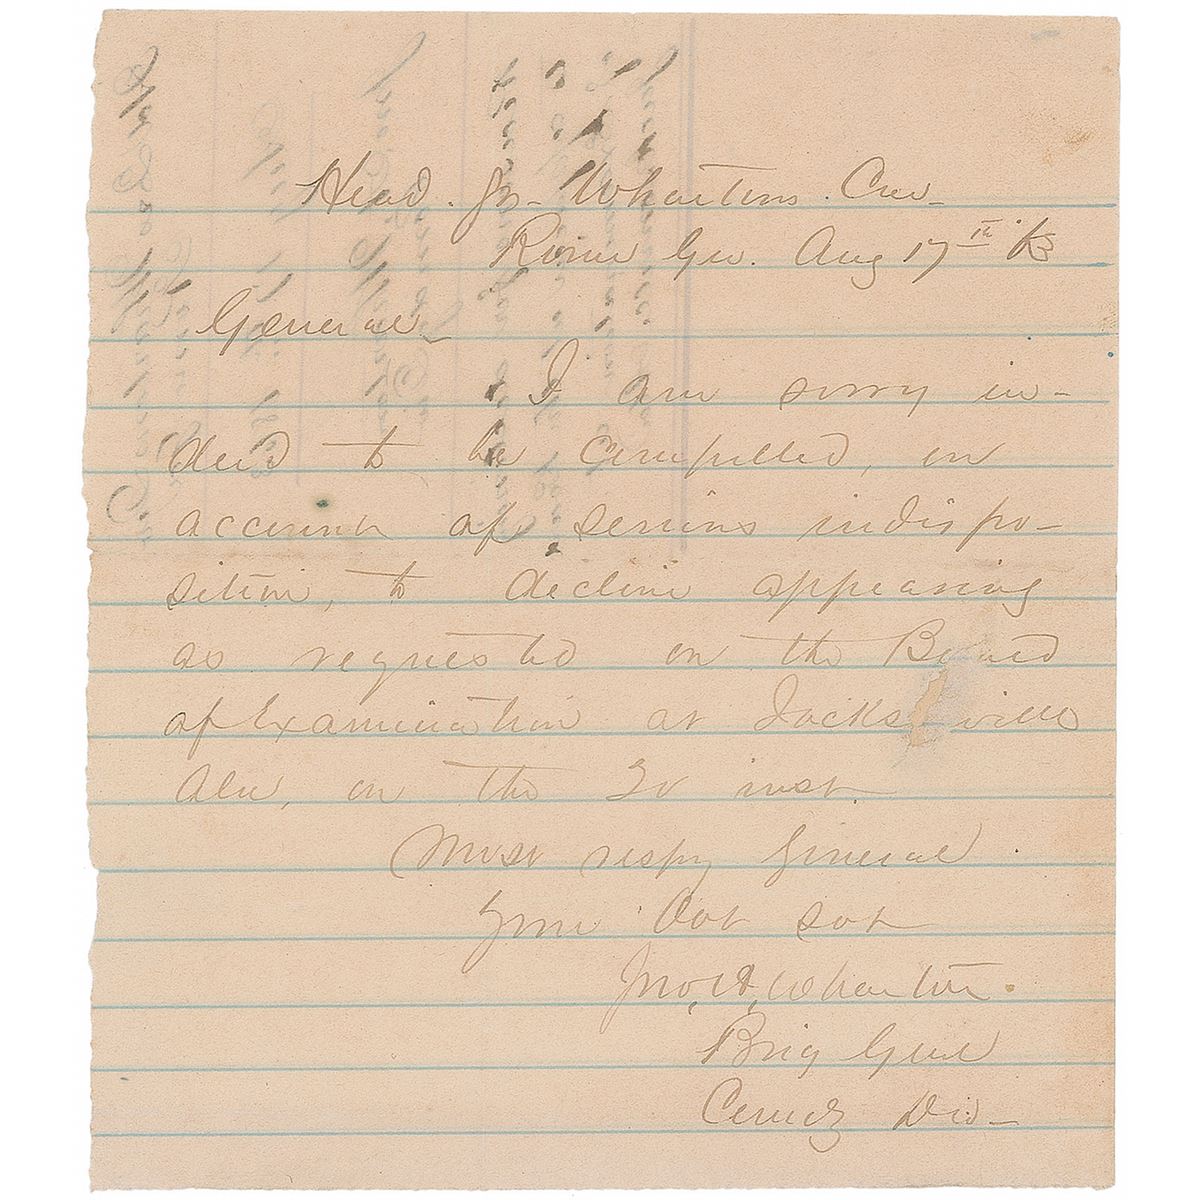 Head. Qrs. Whartons. Cav.
Rome Ga. Aug 17th 63
General
I am sorry in-
deed to be compelled, on
account of serious indispo-
sition, to decline appearing
as requested on the Board
of Examination at Jacksonville
Ala, on the 20 inst.
Most respy General
Your Obt svt
Jno. A. Wharton.
Brig Genl
Comdg Div